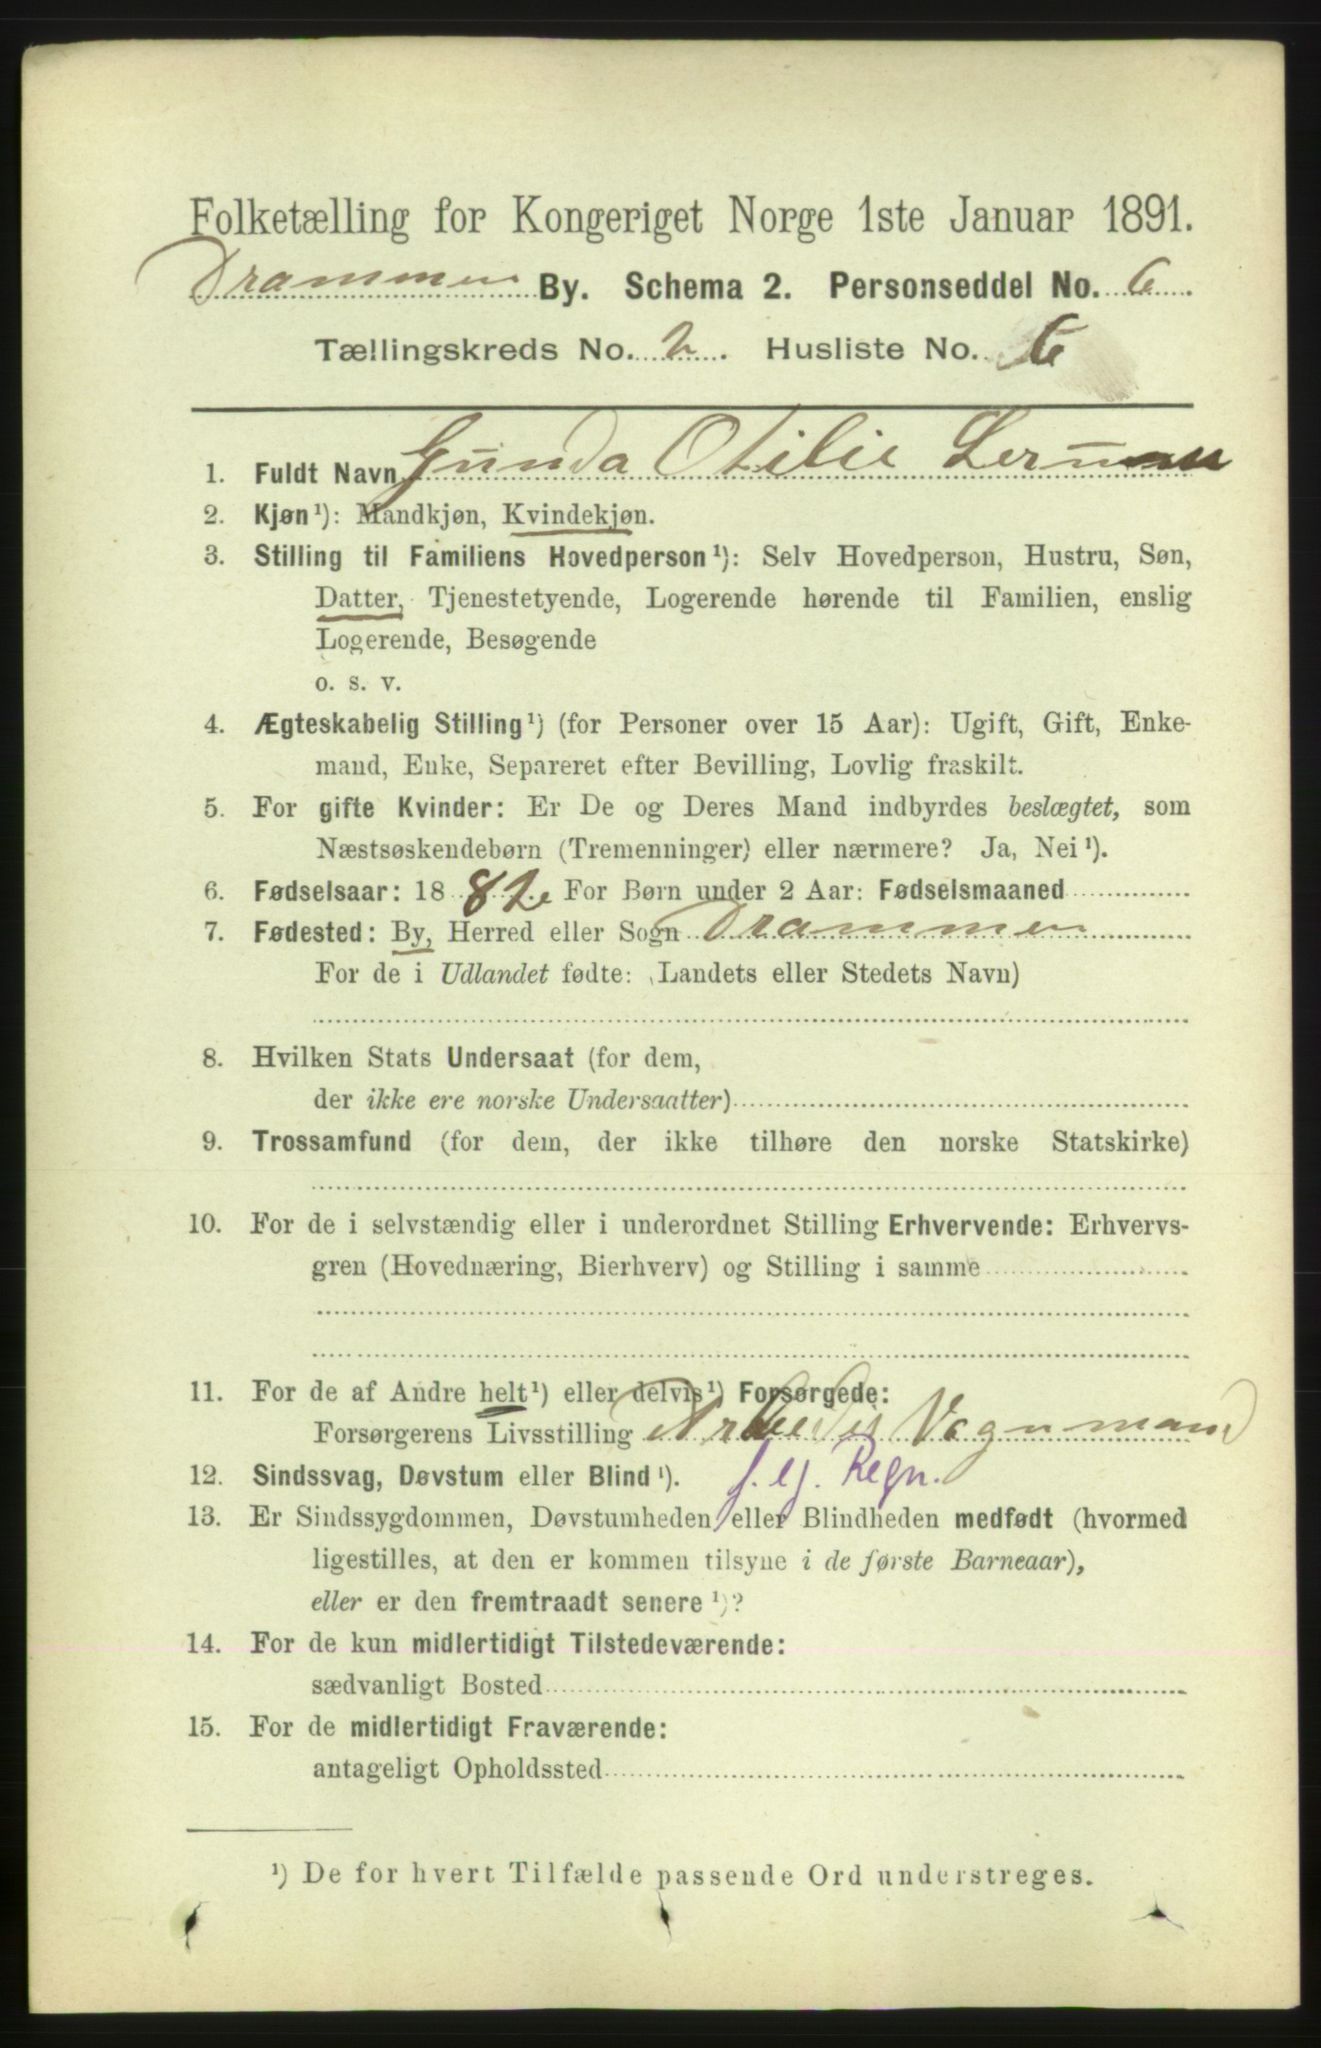 Folketælling for Kongeriget Norge 1ste Januar 1891.
Drammen By. Schema 2. Personseddel No. 6.
Tællingskreds No. 2. Husliste No. 6
1. Fuldt Navn Gunda Otilie
2. Kjøn¹): Mandkjøn, Kvindekjøn.
3. Stilling til Familiens Hovedperson¹): Selv Hovedperson, Hustru, Søn,
Datter, Tjenestetyende, Logerende hørende til Familien, enslig
Logerende, Besøgende
o. s. v.
4. Ægteskabelig Stilling¹) (for Personer over 15 Aar): Ugift, Gift, Enke-
mand, Enke, Separeret efter Bevilling, Lovlig fraskilt.
5. For gifte Kvinder: Er De og Deres Mand indbyrdes beslægtet, som
Næstsøskendebørn (Tremenninger) eller nærmere? Ja, Nei¹).
6. Fødselsaar: 1882 For Børn under 2 Aar: Fødselsmaaned
7. Fødested: By, Herred eller Sogn Drammen
For de i Udlandet fødte: (Landets eller Stedets Navn)
8. Hvilken Stats Undersaat (for dem,
der ikke ere norske Undersaatter)
9. Trossamfund (for dem, der ikke tilhøre den norske Statskirke)
10. For de i selvstændig eller i underordnet Stilling Erhvervende: Erhvervs-
gren (Hovednæring, Bierhverv) og Stilling i samme
11. For de af Andre helt¹) eller delvis¹) Forsørgede:
Forsørgerens Livsstilling Arbeder Vognmand
f. eg. Regn.
12. Sindssvag, Døvstum eller Blind¹).
13. Er Sindssygdommen, Døvstumheden eller Blindheden medfødt (hvormed
ligestilles, at den er kommen tilsyne i de første Barneaar),
eller er den fremtraadt senere¹)?
14. For de kun midlertidigt Tilstedeværende:
sædvanligt Bosted
15. For de midlertidigt Fraværende:
antageligt Opholdssted
¹) De for hvert Tilfælde passende Ord understreges.